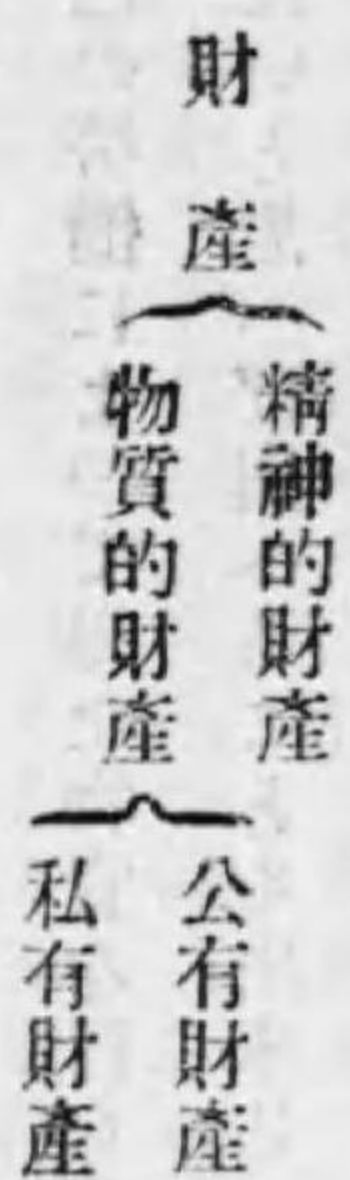 財產
精神的財產
物質的財產
公有財產
私有財產